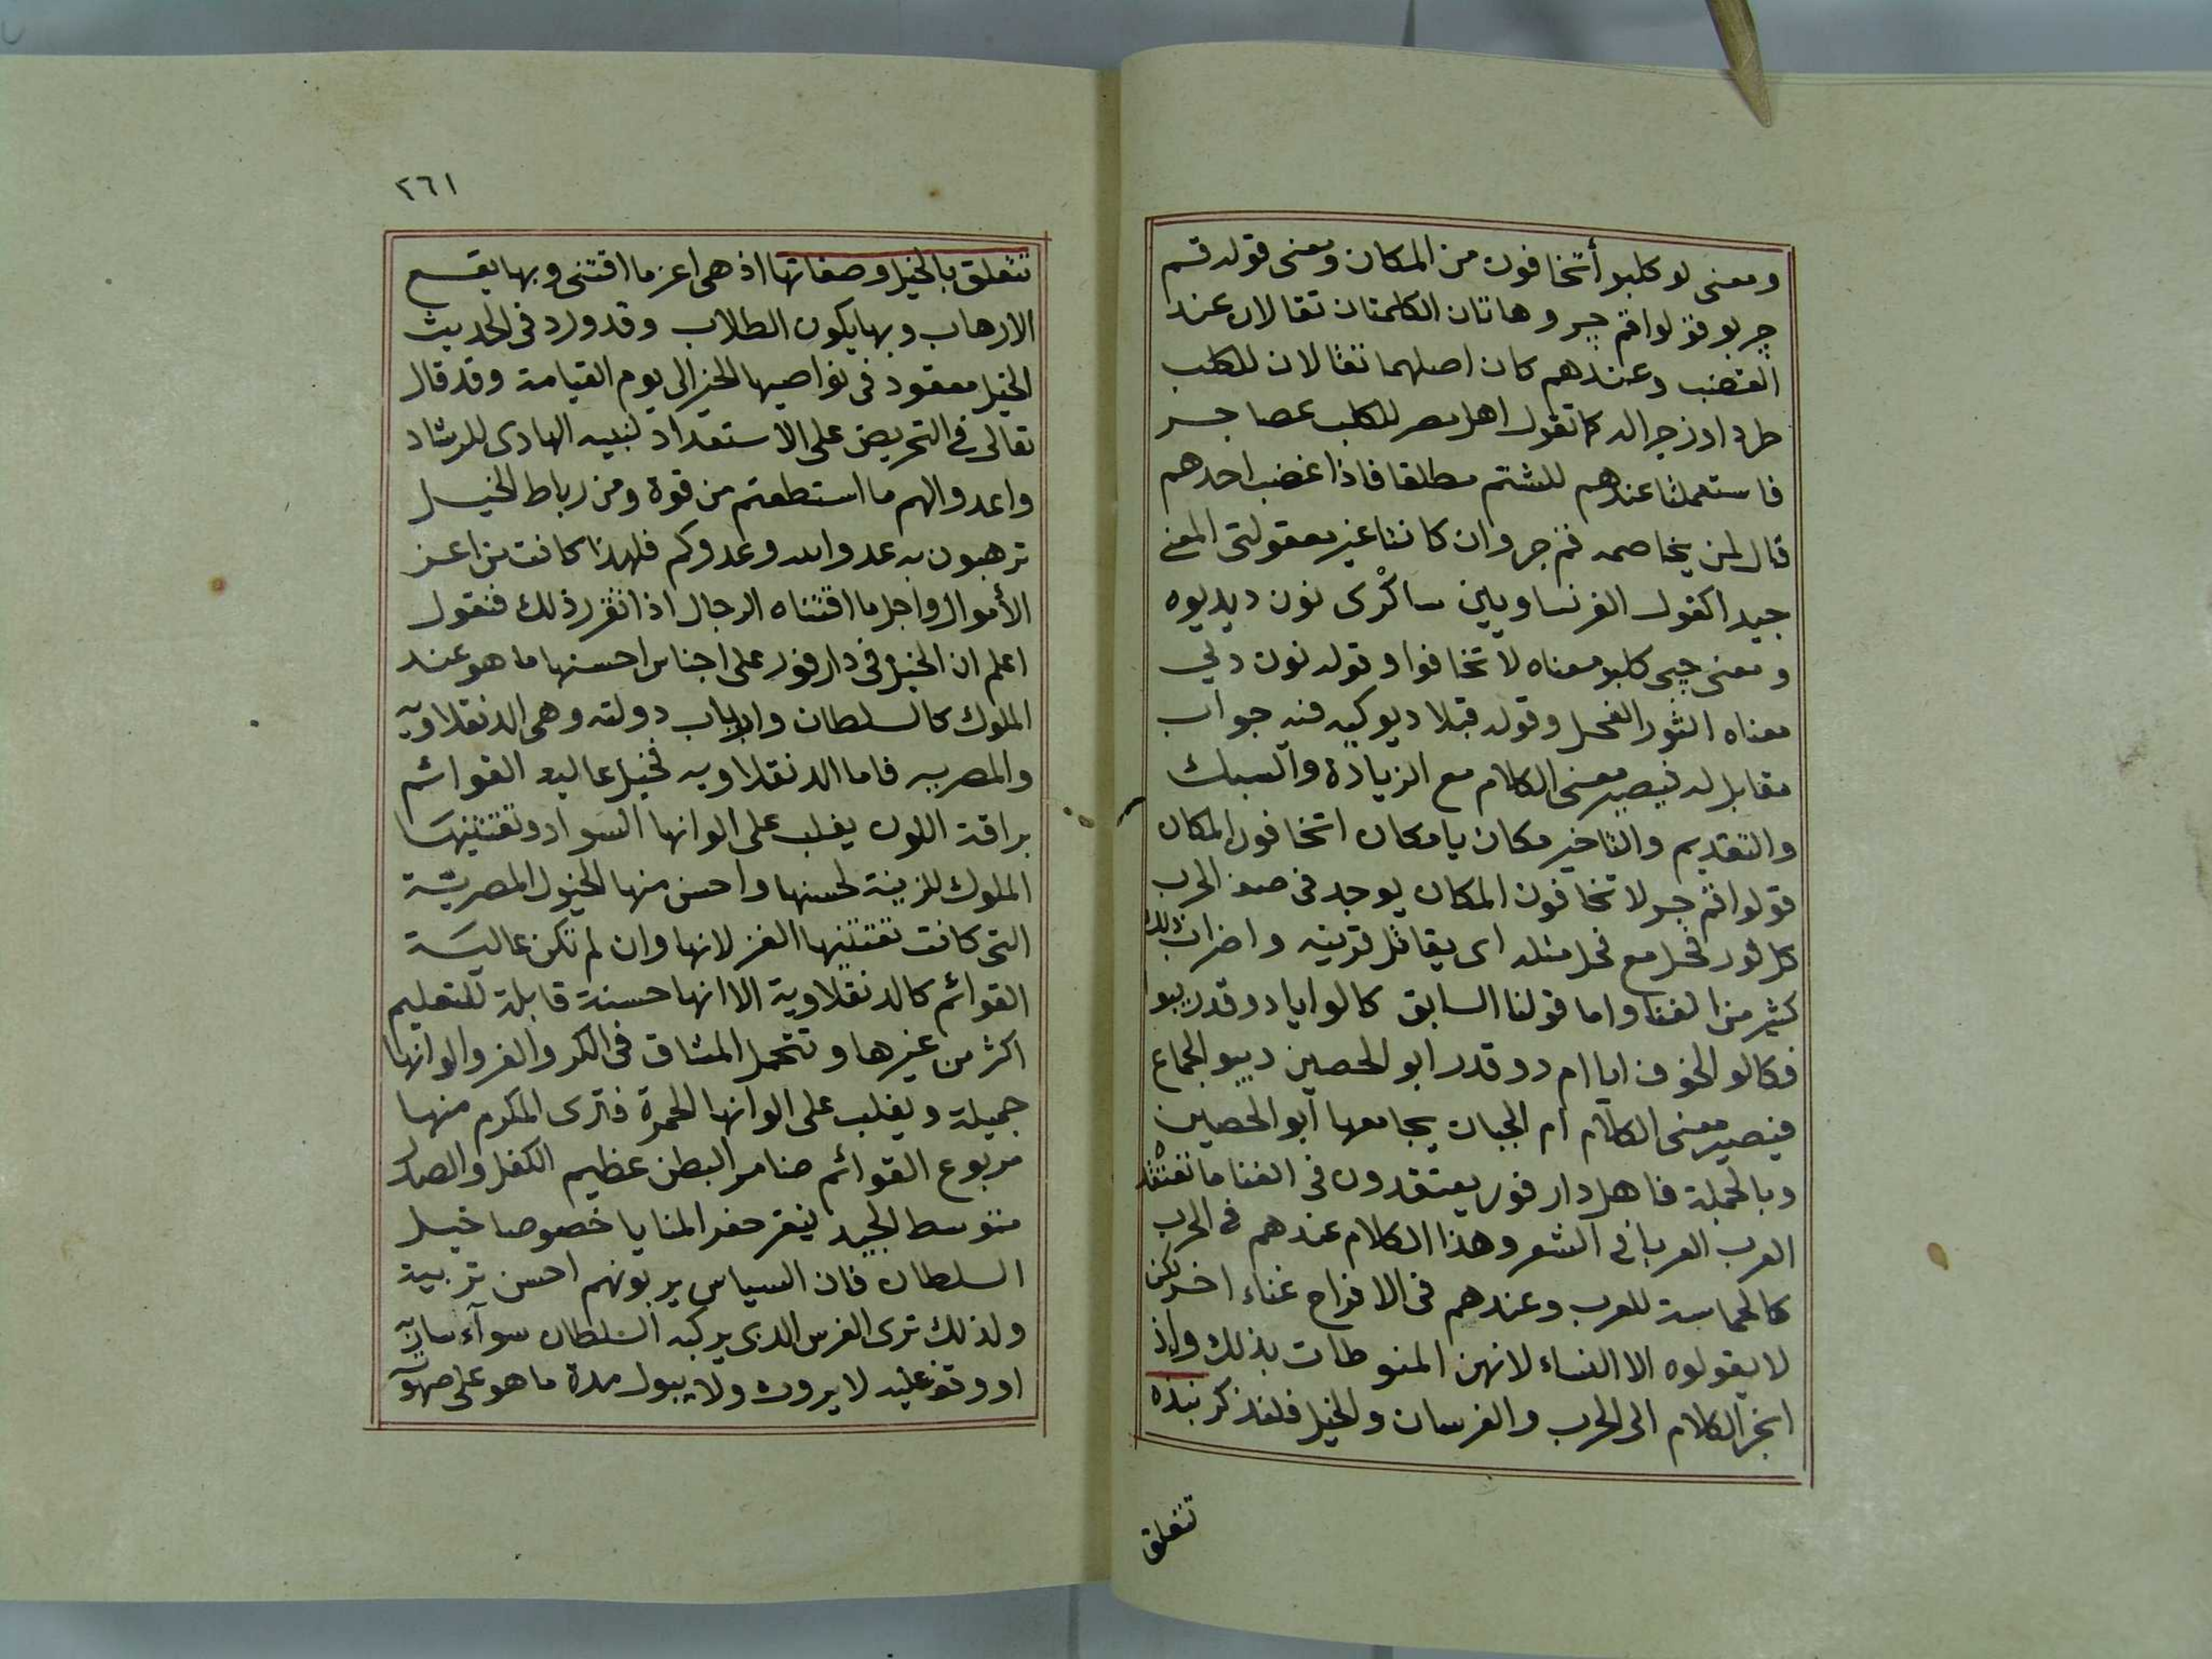 ومعنى لو كلبو أتخافون من المكان ومعنى قوله قم
جر بو قولوا قم جر وهاتان الكلمتان تقالان عند
الغضب وعندهم كان اصلهما تقالان للكلب
طردا وزجرا له كما تقول اهل مصر للكلب عصا جر
فاستعملتا عندهم للشتم مطلقا فاذا غضب احدهم
قال لمن يخاصمه قم جر وان كانتا غير معقولتى المعنى
جيدا كقول الفرنساويين ساكرى نون ديديوه
ومعنى جبى كلبو معناه لا تخافوا وقوله نون دلي
معناه الثور الفحل وقوله قبلا ديو كيه فنه جواب
مقابل له فيصير معنى الكلام مع الزيادة والسبك
والتقديم والتاخير مكان يا مكان اتخافون المكان
قولوا قم جر لا تخافون المكان يوجد فى صف الحرب
كل ثور فحل مع فحل مثله اى يقاتل قرينه واضراب ذلك
كثير من الغنا واما قولنا السابق كالو ايا دو قدر بيوا
فكالو الخوف ايا ام دو قدر ابو الحصين ديبو الجماع
فيصير معنى الكلام ام الجبان يجامعها ابو الحصين
وبالجملة فاهل دار فور يعتقدون فى الغنا ما تعتقده
العرب العربا فى الشعر وهذا الكلام عندهم فى الحرب
كالحماسة للعرب وعندهم فى الافراح غناء اخر لكن
لا يقولوه الا النساء لانهن المنوطات بذلك واذ
انجر الكلام الى الحرب والفرسان والخيل فلنذكر نبذه
تتعلق
٢٦١
تتعلق بالخيل وصفاتها اذ هى اعز ما اقتنى وبها يقع
الارهاب وبها يكون الطلاب وقد ورد فى الحديث
الخيل معقود فى نواصيها الخير الى يوم القيامة وقد قال
تعالى فى التحريض على الاستعداد لنبيه الهادى للرشاد
واعدوا لهم ما استطعتم من قوة ومن رباط الخيل
ترهبون به عدو الله وعدوكم فلهذا كانت من اعز
الأموال واجل ما اقتناه الرجال اذا تقرر ذلك فنقول
اعلم ان الخيل فى دار فور على اجناس احسنها ما هو عند
الملوك كالسلطان وارباب دولته وهى الدنقلاويه
والمصريه فاما الدنقلاويه فخيل عاليه القوائم
براقة اللون يغلب على الوانها السواد وتقتنيها
الملوك للزينة لحسنها واحسن منها الخيول المصرية
التى كانت تقتنيها الغز لانها وان لم تكن عالية
القوائم كالدنقلاوية الا انها حسنة قابلة للتعليم
اكثر من غيرها وتتحمل المشاق فى الكر والفر والوانها
جميلة ويغلب على الوانها الحمرة فترى المكرم منها
مربوع القوائم ضامر البطن عظيم الكفل والصدر
متوسط الجيد ينقر حفر المنايا خصوصا خيل
السلطان فان السياس يربونهم احسن تربية
ولذلك ترى الفرس الذى يركبه السلطان سوآء سار به
او وقف عليه لا يروث ولا يبول مدة ما هو على صهوته